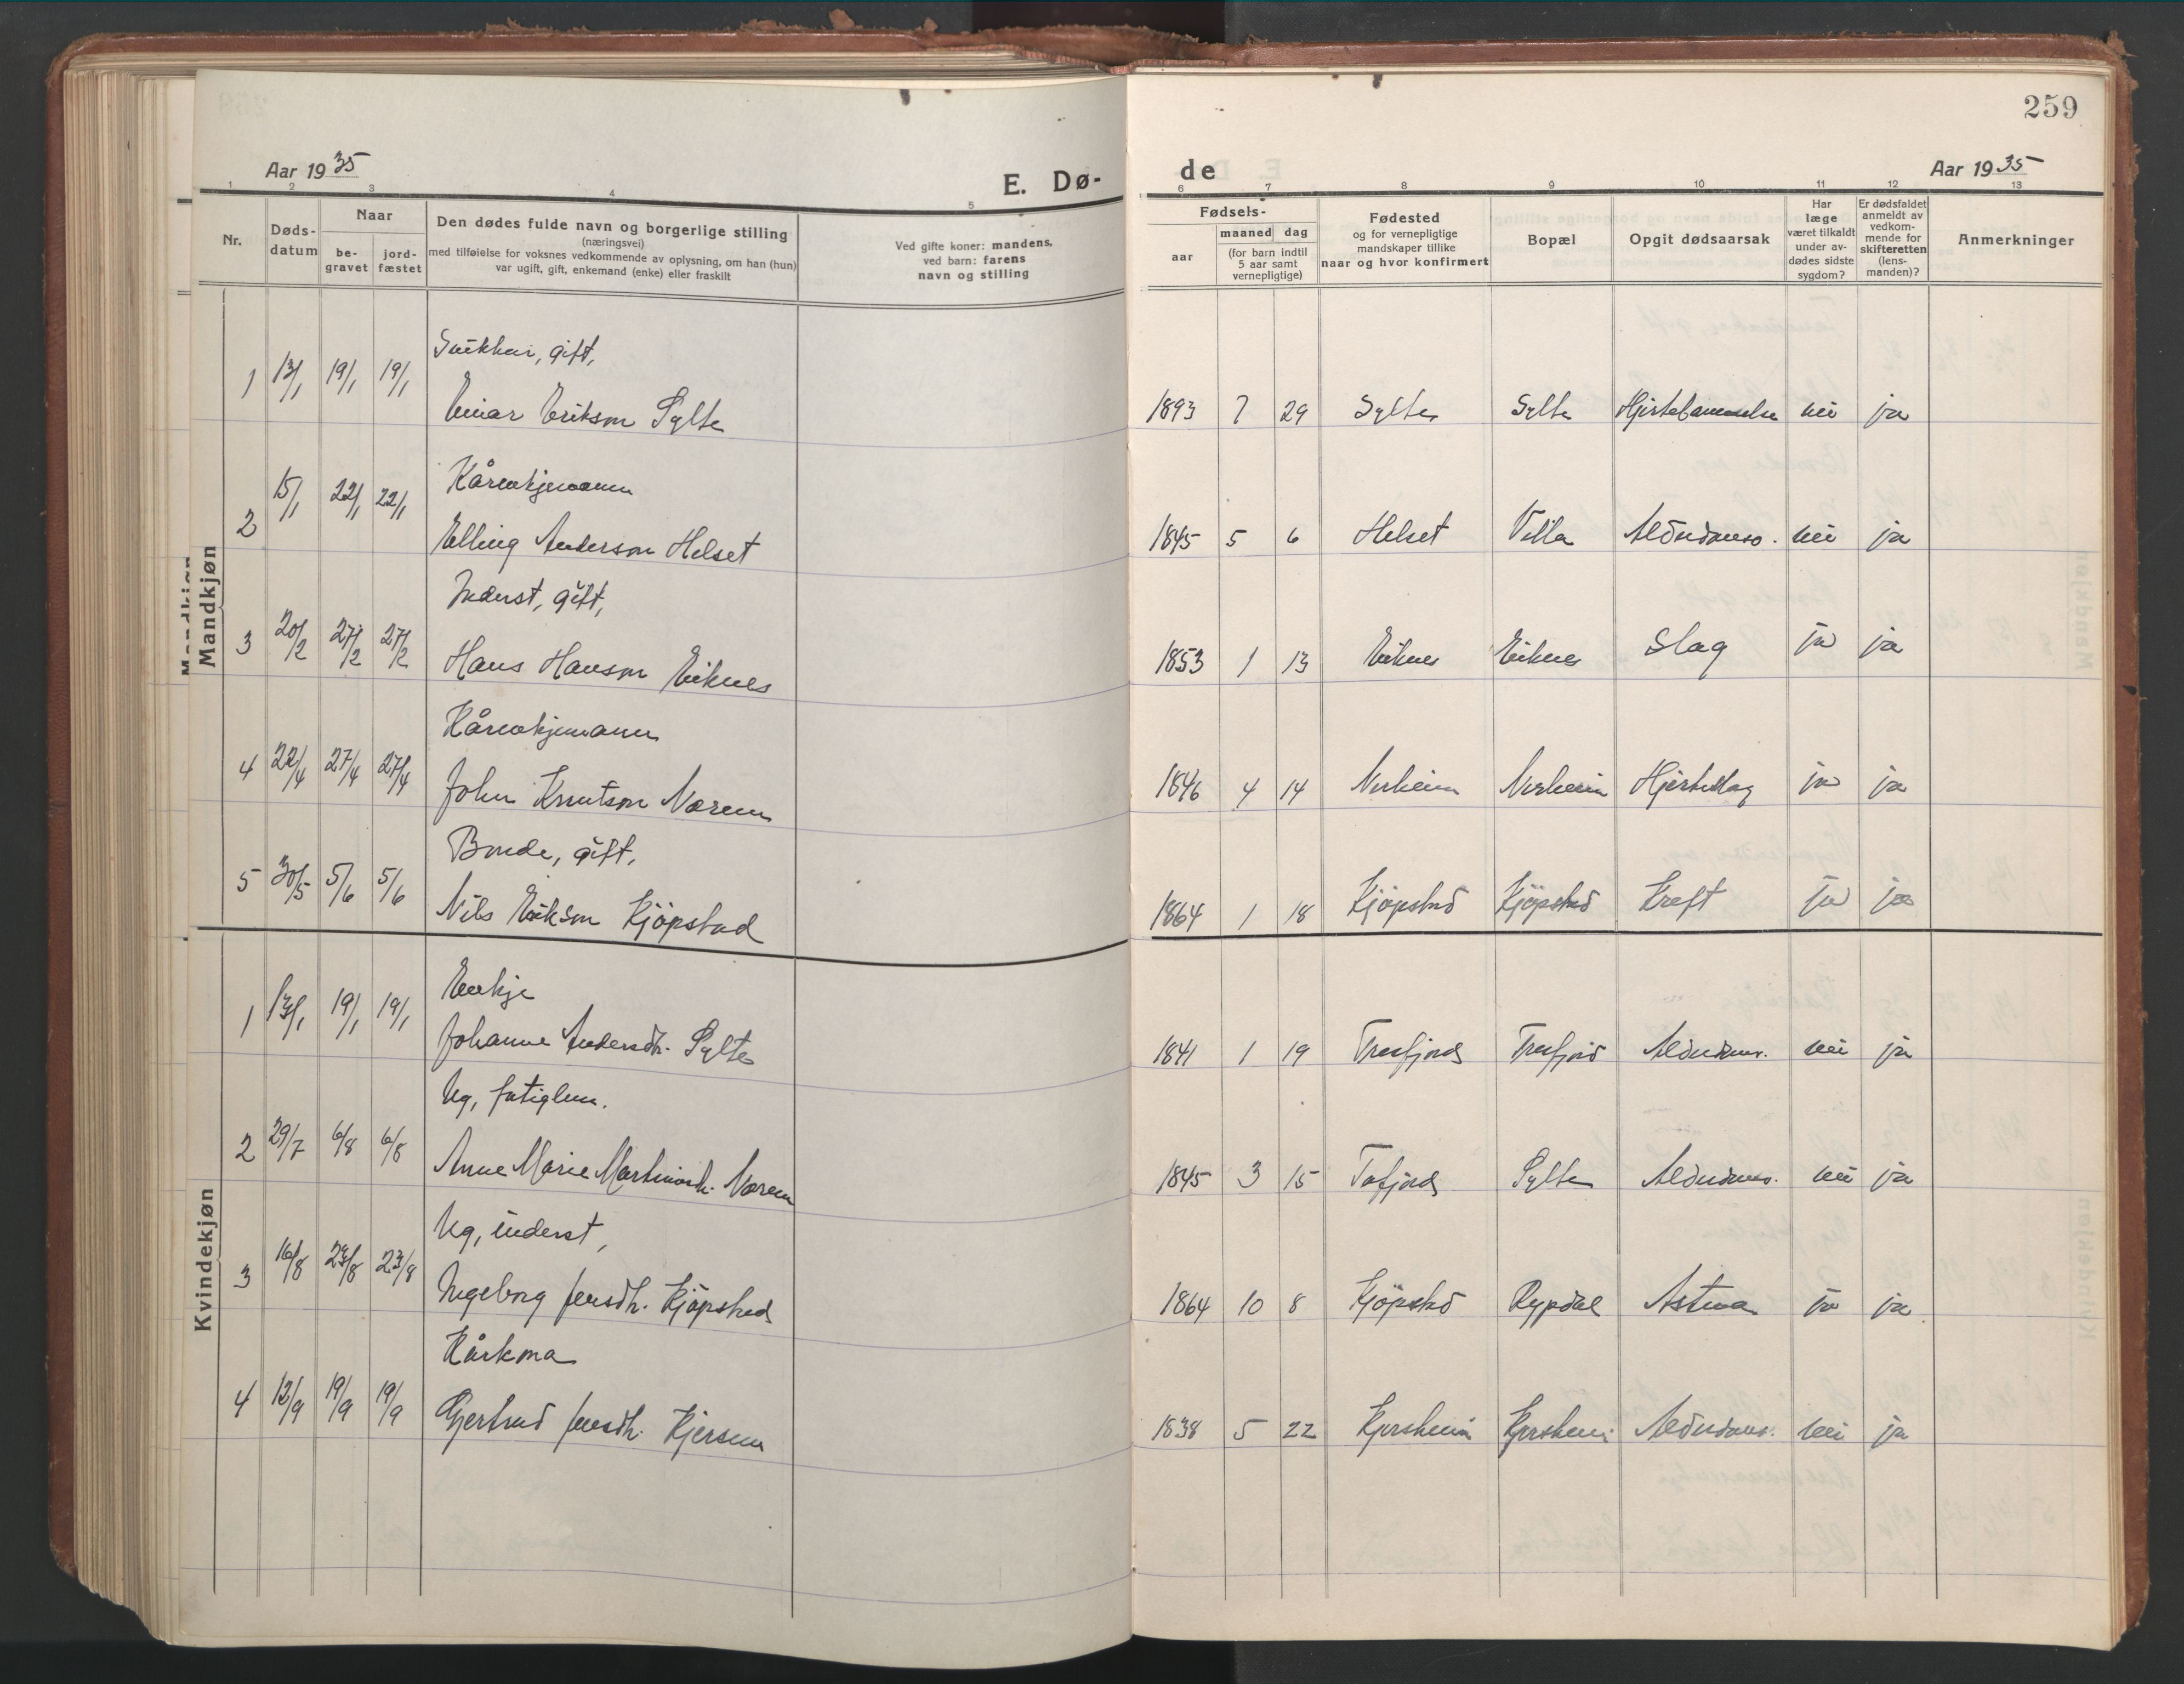 259
Aar 1935
E. Dø-
de
Aar 1935
1 2 3 4 5 6 7 8 9 10 11 12 13
Nr.
Døds-
datum
Naar
be-
gravet
jord-
fæstet
Den dødes fulde navn og borgerlige stilling
(næringsvei)
med tilføielse for voksnes vedkommende av oplysning, om han (hun)
var ugift, gift, enkemand (enke) eller fraskilt
Ved gifte koner: mandens,
ved barn: farens
navn og stilling
Fødsels-
aar
maaned dag
(for barn indtil
5 aar samt
vernepligtige)
Fødested
og for vernepligtige
mandskaper tillike
naar og hvor konfirmert
Bopæl
Opgit dødsaarsak
Har
læge
været tilkaldt
under av-
dødes sidste
sygdom?
Er dødsfaldet
anmeldt av
vedkom-
mende for
skifteretten
(lens-
manden)?
Anmerkninger
Mandkjøn
Snikkar, gift,
1 13/1 19/1 19/1 Einar Erikson Sylte 1893 7 29 Sylte Sylte Hjertelammelse nei ja
Kårenkjemann
2 15/1 22/1 22/1 Elling Anderson Helset 1845 5 6 Helset Villa Aldrdomso. nei ja
Inderst, gift,
3 20/2 27/2 27/2 Hans Hanson Eiknes 1853 1 13 Eiknes Eiknes Slag ja ja
Kårenkjemann
4 22/4 27/4 27/4 John Knutson Norem 1846 4 14 Nerheim Nerheim Hjerteslag ja ja
Bonde, gift,
5 30/5 5/6 5/6 Nils Eikson Kjöpstad 1864 1 18 Kjöpstad Kjöpstad Kreft ja ja
Kvindekjøn
Enkje
1 13/1 19/1 19/1 Johanne Andersdtr. Sylte 1841 1 19 Tresfjord Tresfjord nei ja
Ug, fatiglem.
2 29/7 6/8 6/8 Anne Marie Norem 1845 3 15 Tafjord Sylte nei ja
Ug, inderst,
3 16/8 23/8 23/8 Ingeborg Jensdtr. Kjöpstad 1864 10 8 Kjöpstad Rypdal Astma ja ja
Kårkona
4 12/9 19/9 19/9 Gjertrud Jensdtr. Kjersem 1838 5 22 Kjersheim Kjersheim nei ja